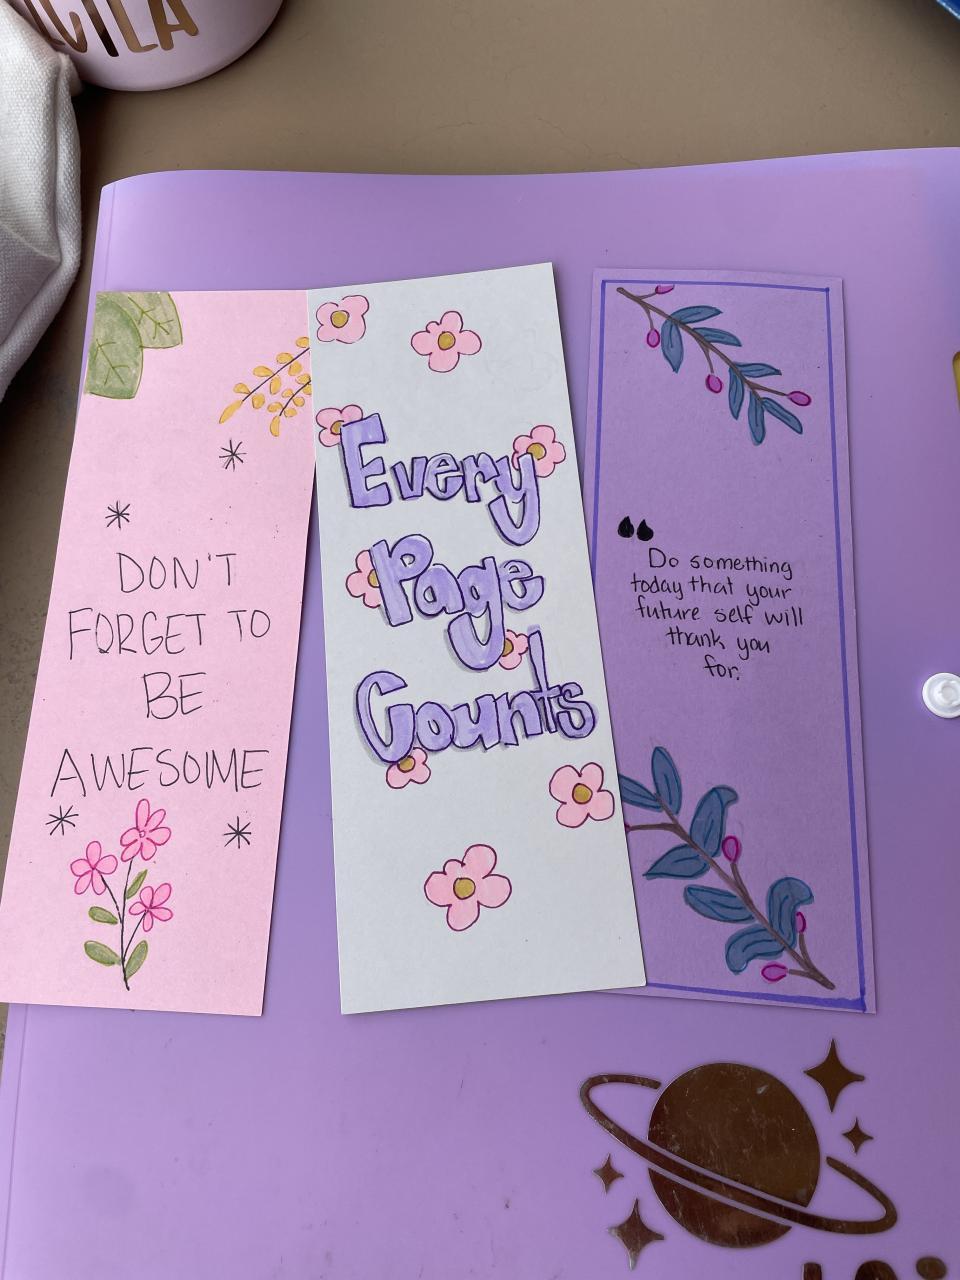 DON'T
FORGET TO
BE
AWESOME
Every
Page
Counts
“
Do something
today that your
future self will
thank you
for.